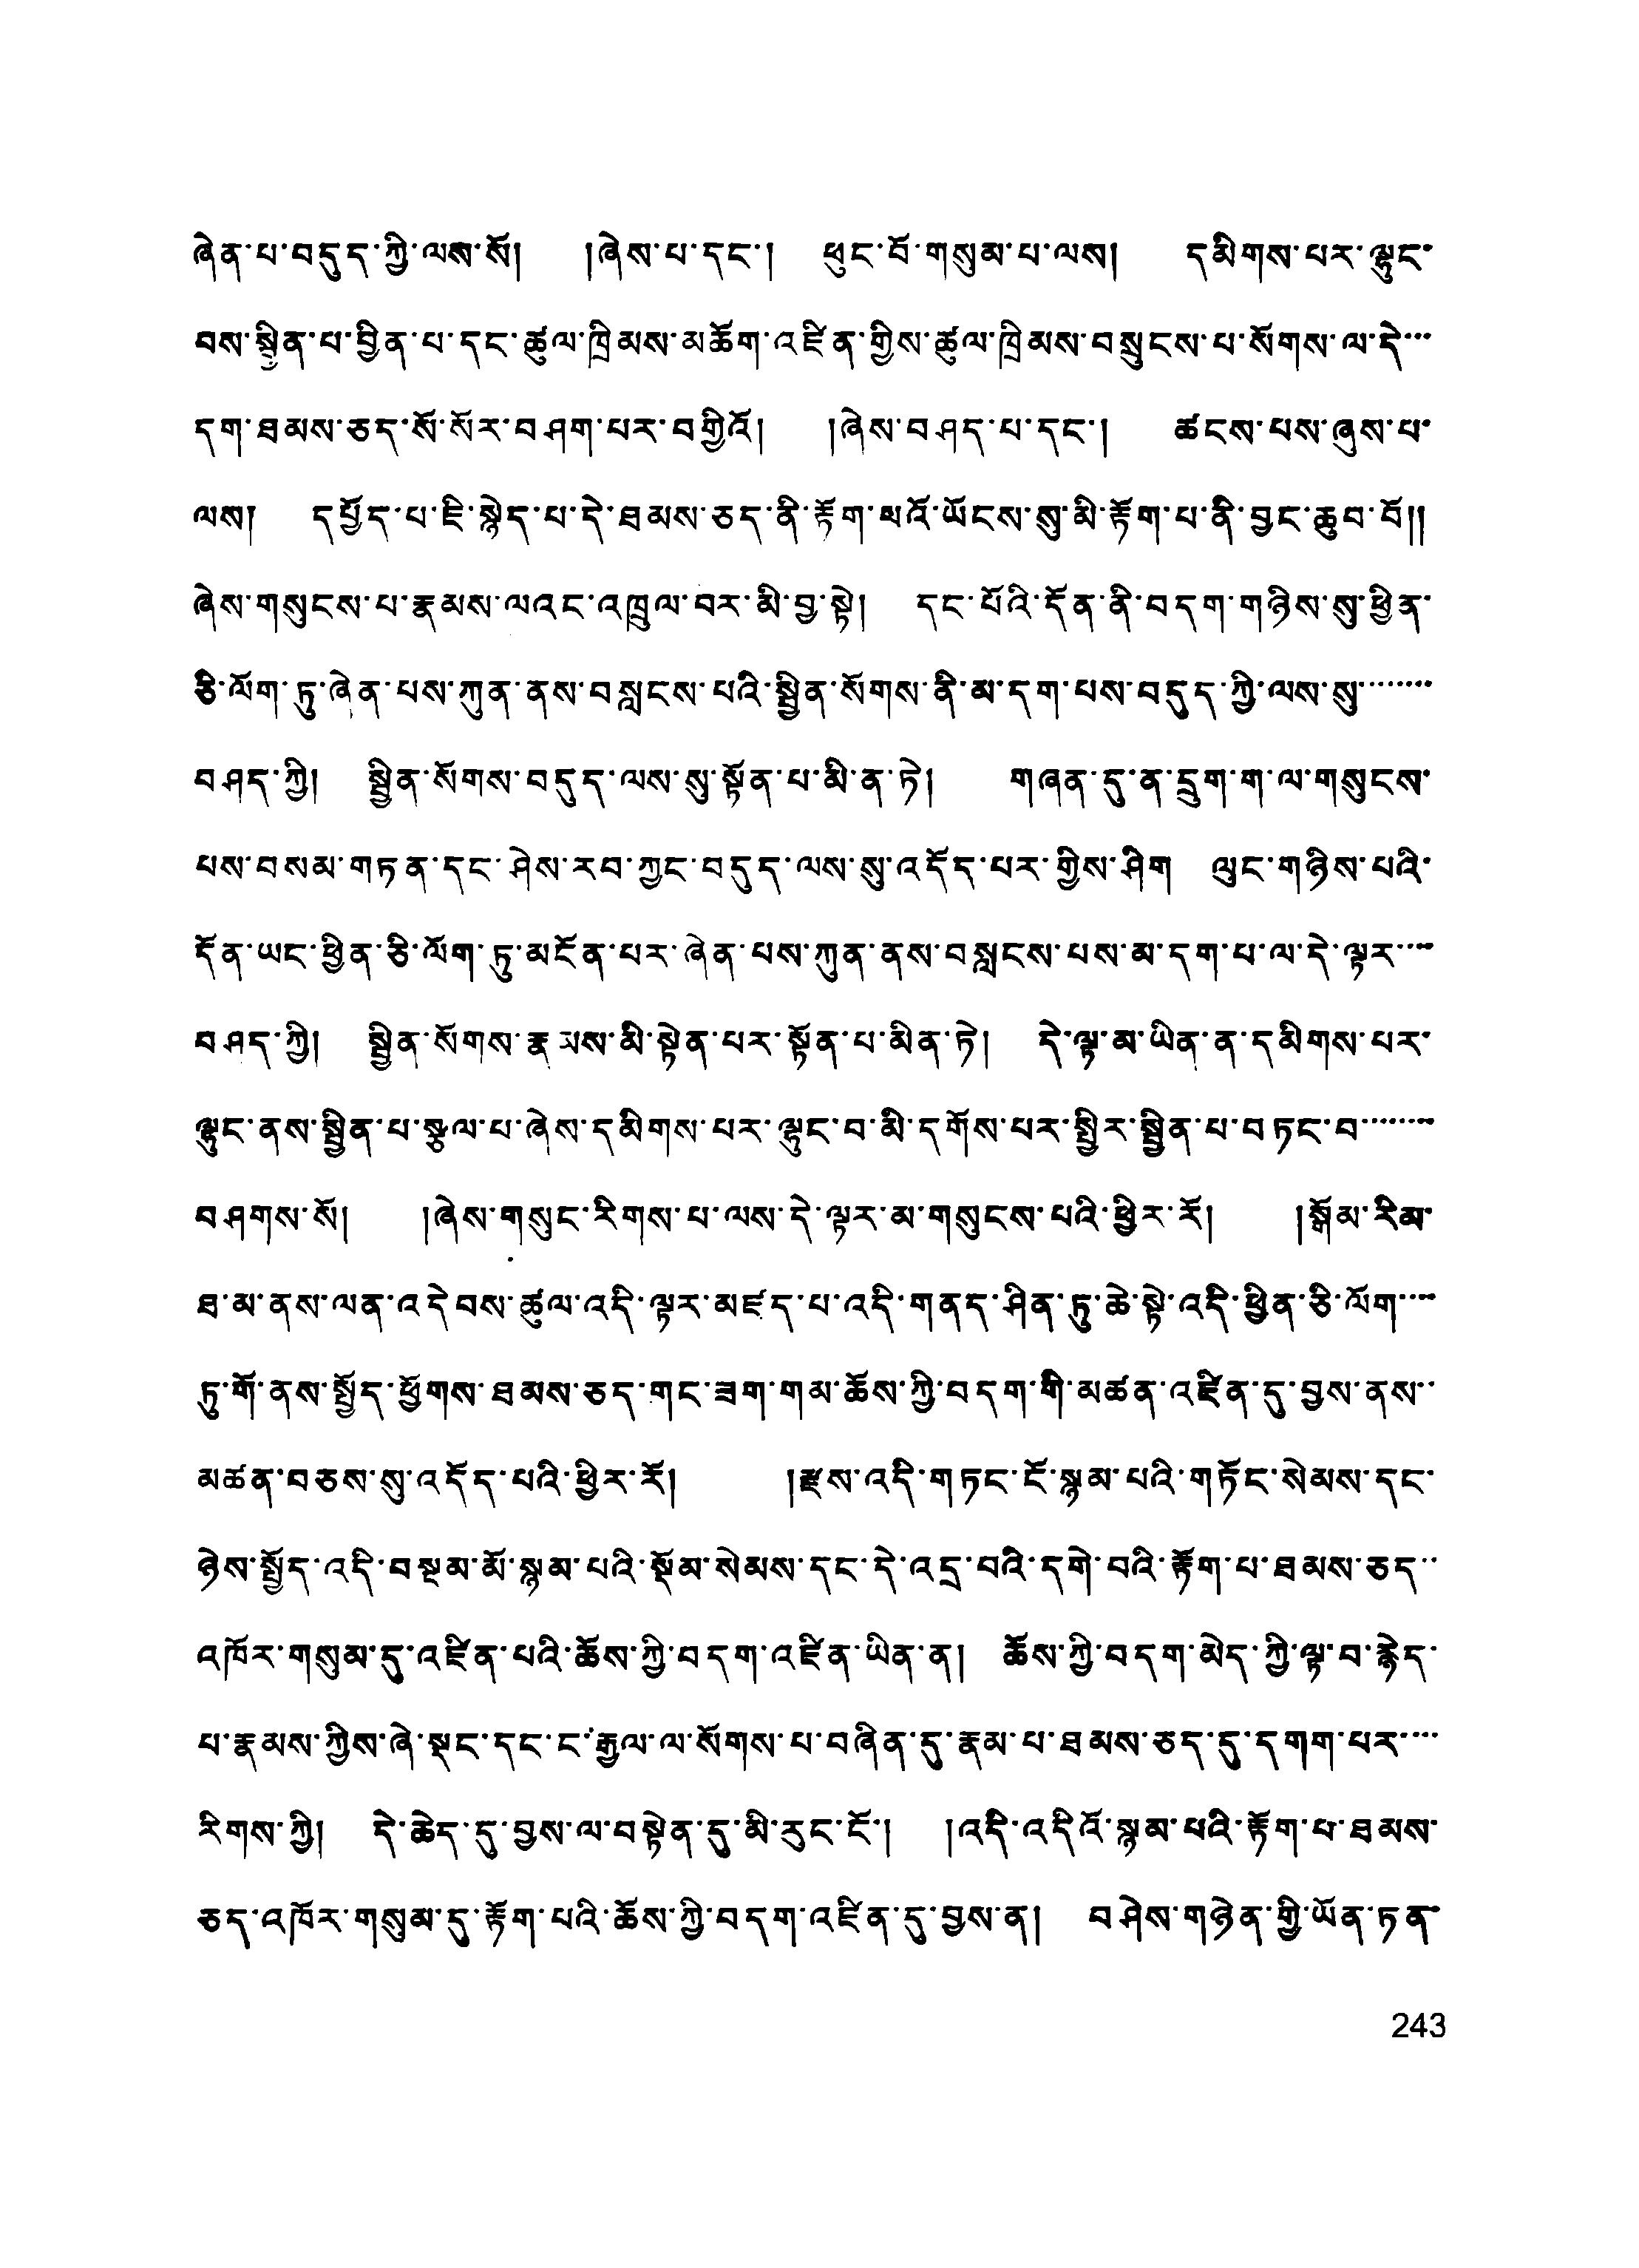 ཞེན་པ་བདུད་ཀྱི་ལས་སོ། །ཞེས་པ་དང་། ཕུང་པོ་གསུམ་པ་ལས། དམིགས་པར་ལྷུང་
བས་སྦྱིན་པ་བྱིན་པ་དང་ཚུལ་ཁྲིམས་མཆོག་འཛིན་གྱིས་ཚུལ་ཁྲིམས་བསྲུངས་པ་སོགས་ལ་དེ་་་
དག་ཐམས་ཅད་སོ་སོར་བཤག་པར་བགྱིའོ། །ཞེས་བཤད་པ་དང་། ཚངས་པས་ཞུས་པ་
ལས། དཔྱོད་པ་ཇི་སྙེད་པ་དེ་ཐམས་ཅད་ནི་རྟོག་པའོ་ཡོངས་སུ་མི་རྟོག་པ་ནི་བྱང་ཆུབ་བོ།།
ཞེས་གསུངས་པ་རྣམས་ལའང་འཁྲུལ་བར་མི་བྱ་སྟེ། དང་པོའི་དོན་ནི་བདག་གཉིས་སུ་ཕྱིན་
ཅི་ལོག་ཏུ་ཞེན་པས་ཀུན་ནས་བསླངས་པའི་སྦྱིན་སོགས་ནི་མ་དག་པས་བདུད་ཀྱི་ལས་སུ་་་་་་་་
བཤད་ཀྱི། སྦྱིན་སོགས་བདུད་ལས་སུ་སྟོན་པ་མི་ན་ཏེ། གཞན་དུ་ན་དྲུག་ག་ལ་གསུངས་
པས་བསམ་གཏན་དང་ཤེས་རབ་ཀྱང་བདུད་ལས་སུ་འདོད་པར་གྱིས་ཤིག ལུང་གཉིས་པའི་
དོན་ཡང་ཕྱིན་ཅི་ལོག་ཏུ་མངོན་པར་ཞེན་པས་ཀུན་ནས་བསླངས་པས་མ་དག་པ་ལ་དེ་ལྟར་་་་
བཤད་ཀྱི། སྦྱིན་སོགས་རྣམས་མི་སྟེན་པར་སྟོན་པ་མིན་ཏེ། དེ་ལྟ་མ་ཡིན་ན་དམིགས་པར་
ལྷུང་ནས་སྦྱིན་པ་སྩལ་པ་ཞེས་དམིགས་པར་ལྷུང་བ་མི་དགོས་པར་སྤྱིར་སྦྱིན་པ་བཏང་བ་་་་་་་་
བཤགས་སོ། །ཞེས་གསུང་རིགས་པ་ལས་དེ་ལྟར་མ་གསུངས་པའི་ཕྱིར་རོ། །སྒོམ་རིམ་
ཐ་མ་ནས་ལན་འདེབས་ཚུལ་འདི་ལྟར་མཛད་པ་འདི་གནད་ཤིན་ཏུ་ཆེ་སྟེ་འདི་ཕྱིན་ཅི་ལོག་་་་
ཏུ་གོ་ནས་སྤྱོད་ཕྱོགས་ཐམས་ཅད་གང་ཟག་གམ་ཆོས་ཀྱི་བདག་གི་མཚན་འཛིན་དུ་བྱས་ནས་་
མཚན་བཅས་སུ་འདོད་པའི་ཕྱིར་རོ། །རྫས་འདི་གཏང་ངོ་སྙམ་པའི་གཏོང་སེམས་དང་
ཉེས་སྤྱོད་འདི་བསྡམ་མོ་སྙམ་པའི་སྡོམ་སེམས་དང་དེ་འདྲ་བའི་དགེ་བའི་རྟོག་པ་ཐམས་ཅད་་
འཁོར་གསུམ་དུ་འཛིན་པའི་ཆོས་ཀྱི་བདག་འཛིན་ཡིན་ན། ཆོས་ཀྱི་བདག་མེད་ཀྱི་ལྟ་བ་རྙེད་
པ་རྣམས་ཀྱིས་ཞེ་སྡང་དང་ང་རྒྱལ་ལ་སོགས་པ་བཞིན་དུ་རྣམ་པ་ཐམས་ཅད་དུ་དགག་པར་་་་
རིགས་ཀྱི། དེ་ཆེད་དུ་བྱས་ལ་བསྟེན་དུ་མི་རུང་ངོ་། །འདི་འདིའོ་སྙམ་པའི་རྟོག་པ་ཐམས་
ཅད་འཁོར་གསུམ་དུ་རྟོག་པའི་ཆོས་ཀྱི་བདག་འཛིན་དུ་བྱས་ན། བཤེས་གཉེན་གྱི་ཡོན་ཏན་
243